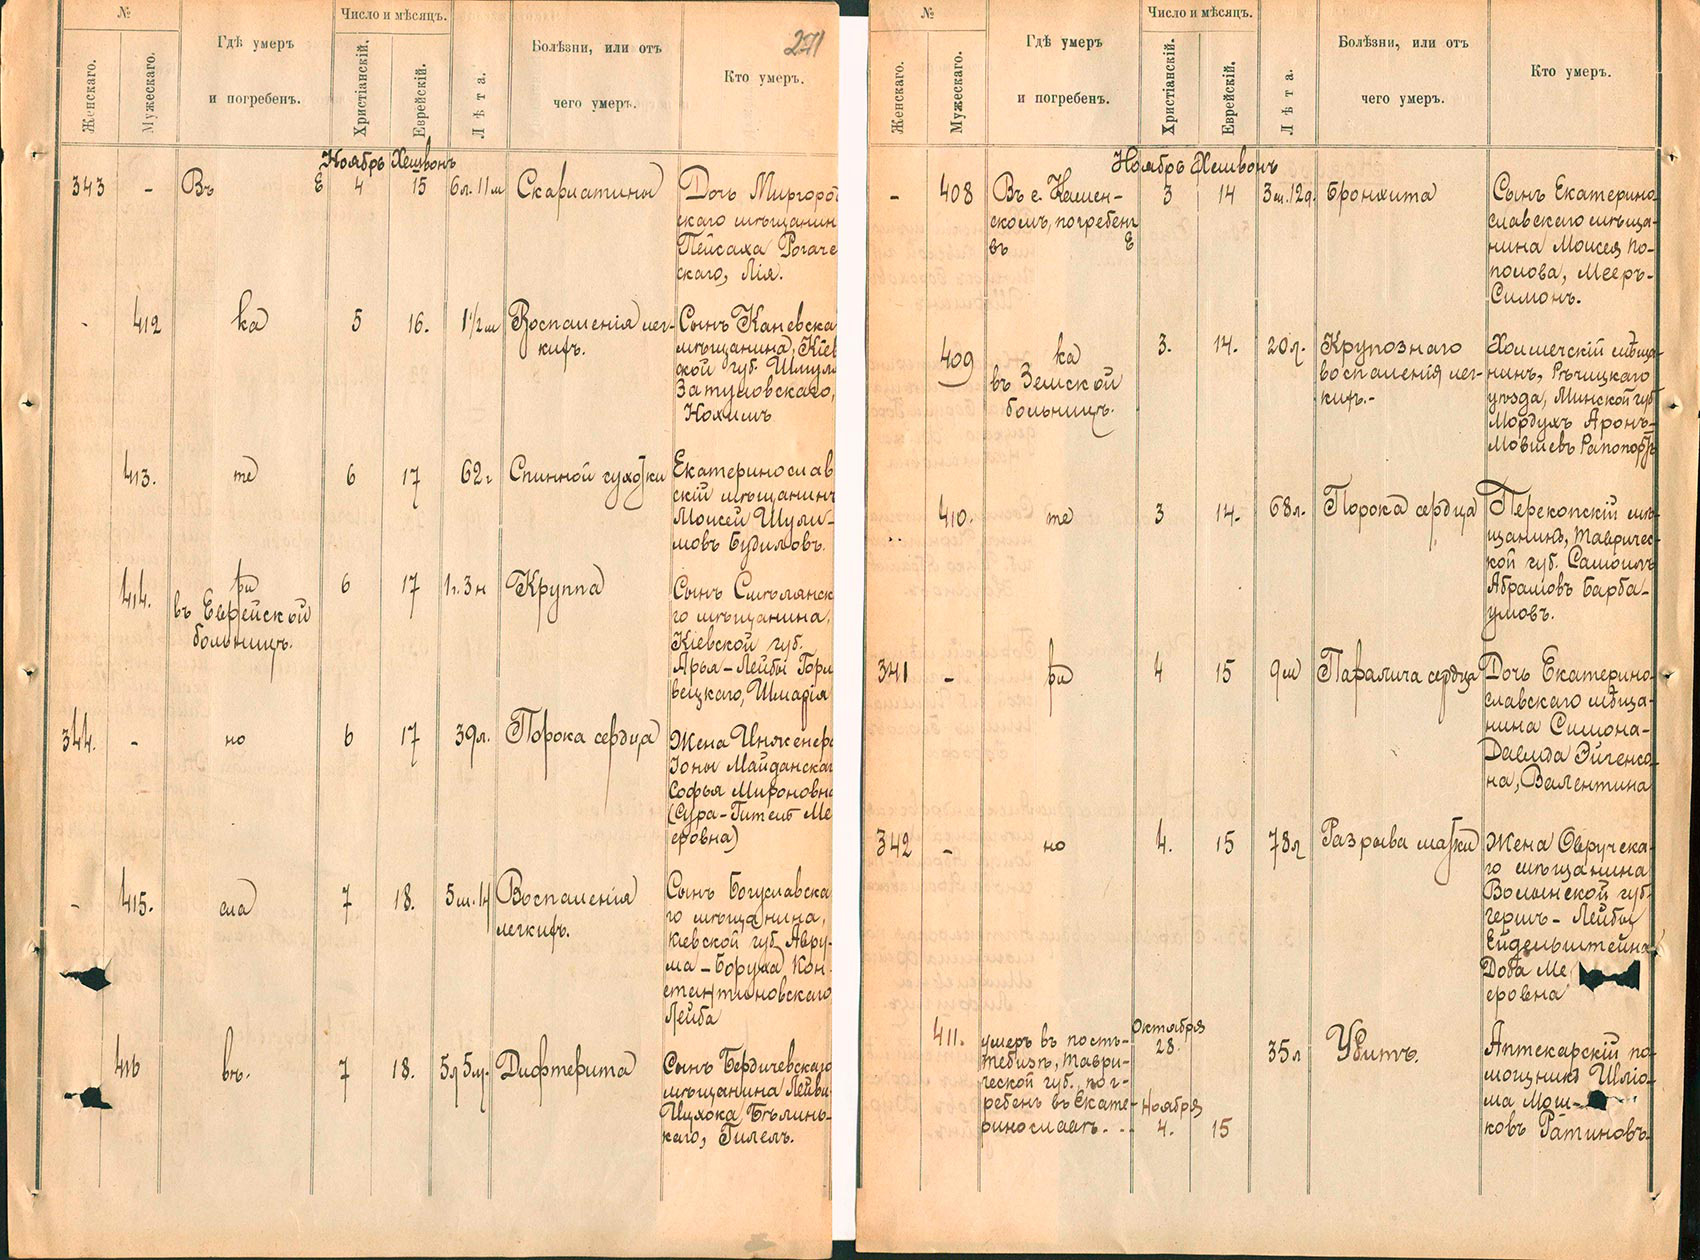 №
Женскаго.
Мужескаго.
Гдѣ умеръ
и погребенъ.
Число и мѣсяцъ.
Христіанскій.
Еврейскій.
Лѣта.
Болѣзни, или отъ
чего умеръ.
Кто умеръ.
271
Ноябрь Хешвонъ
343 - Въ Е 4 15 6л. 11м Скарлатины
Дочь Миргород
скаго мѣщанин
Пейсаха Рогаче
скаго, Лія.
- 412 ка 5 16. 1½м Воспаленія лег-
кихъ.
Сынъ Каневска
мѣщанина, Кіев
ской губ. Шмул
Затуловскаго,
Нохимъ
413. те 6 17 62г Спинной сухотки
Екатеринослав
скій мѣщанинъ
Моисей Шули-
мовъ Будиловъ.
414. ри
въ Еврейской
больницѣ.
6 17 1г. 3н Круппа
Сынъ Смѣлянск
го мѣщанина,
Кіевской губ.
Арья-Лейбы Гори
вецкаго, Шмарія
344. - но 6 17 39л. Порока сердца
Жена Инженера
Іоны Майданскаг
Софья Мироновна
(Сура-Гитель Ме
еровна)
- 415. сла 7 18. 5м. 1н Воспаленія
легкихъ.
Сынъ Богуславска
го мѣщанина,
Кіевской губ. Авру-
ма-Боруха Кон-
стантиновскаго
Лейба
416 въ. 7 18. 5л 5м. Дифтерита
Сынъ Бердичевскаго
мѣщанина Лейви
Ицхока Бѣлинь-
каго, Гилель.
№
Женскаго.
Мужескаго.
Гдѣ умеръ
и погребенъ.
Число и мѣсяцъ.
Христіанскій.
Еврейскій.
Лѣта.
Болѣзни, или отъ
чего умеръ.
Кто умеръ.
Ноябрь Хешвонъ
- 408 Въ с. Камен-
скомъ, погребенъ
въ Е
3 14 3м. 12д. Бронхита
Сынъ Екатерино-
славскаго мѣща-
нина Моисея По-
полова, Мееръ-
Симонъ.
409 ка
въ Земской
больницѣ.
3. 14. 20л. Крупознаго
воспаленія лег-
кихъ.-
Холмечскій мѣща-
нинъ, Рѣчицкаго
уѣзда, Минской губ
Мордухъ Аронъ-
Мовшевъ Рапопортъ
410. те 3 14. 68л. Порока сердца
Перекопскій мѣ-
щанинъ, Тавричес-
кой губ. Самоилъ
Абрамовъ Барба-
умовъ.
341 - ри 4 15 9м Паралича сердца
Дочь Екатерино-
славскаго мѣща-
нина Симона-
Давида Эйгенсо-
на, Валентина
342 - но 4. 15 78л Разрыва матки
Жена Овручска-
го мѣщанина
Волынской губ.
Гершъ-Лейбы
Ейдельштейна
Доба Ме
еровна
411. умеръ въ
Таври-
ческой губ., пог-
ребенъ въ Екате-
ринославѣ.
Октября
28.
Ноября
4. 15
35л Убитъ.
Аптекарскій по-
мощникъ Шлio-
ма Мош-
ковъ Ратиновъ.